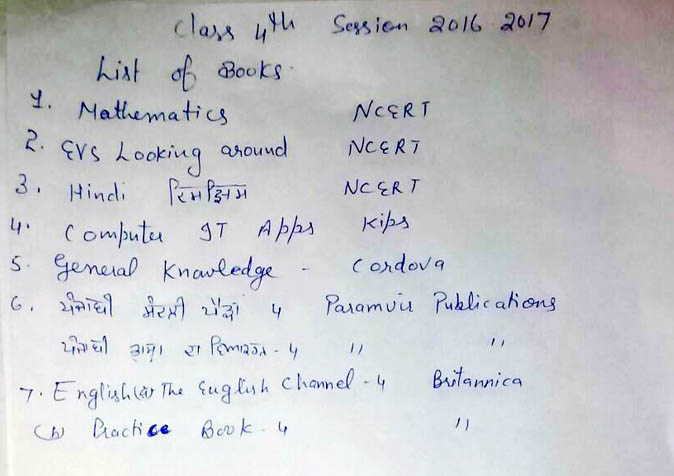 Class 4th Session 2016 2017
List of Books.
1. Mathematics NCERT
2. EVS Looking around NCERT
3. Hindi रिमझिम NCERT
4. Computer IT Apps Kips
5. General Knowledge - Cordova
6. ਪੰਜਾਬੀ 4 Paramvir Publications
ਪੰਜਾਬੀ ਦਾ ਵਿਆਕਰਣ - 4 " "
7. English (a) The English Channel - 4 Britannica
(b) Practice Book - 4 "